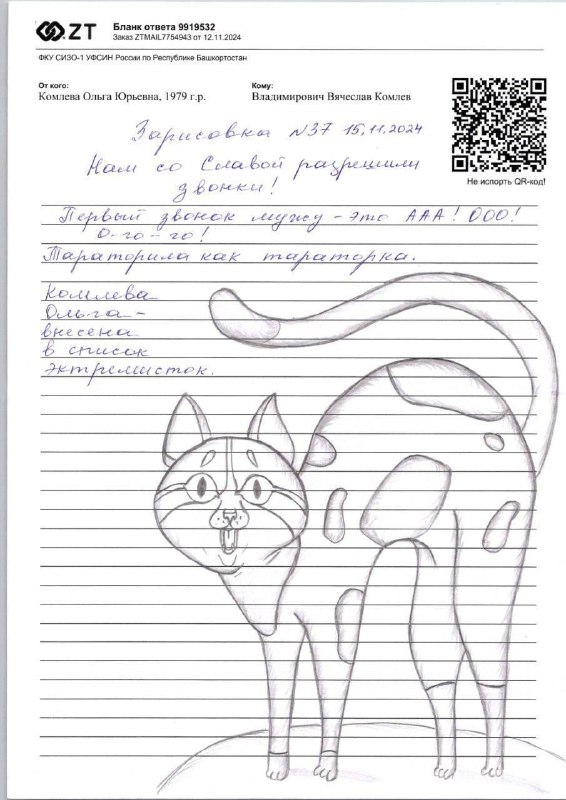 ZT
Бланк ответа 9919532
Заказ ZTMAIL7754943 от 12.11.2024
ФКУ СИЗО-1 УФСИН России по Республике Башкортостан
От кого:
Комлева Ольга Юрьевна, 1979 г.р.
Кому:
Владимирович Вячеслав Комлев
Не испорть QR-код!
Зарисовка №37 15.11.2024
Нам со Славой разрешили
звонки!
Первый звонок мужу - это ААА! ООО!
О-го-го!
Тараторила как тараторка.
Комлева
Ольга -
внесена
в список
эктремисток.